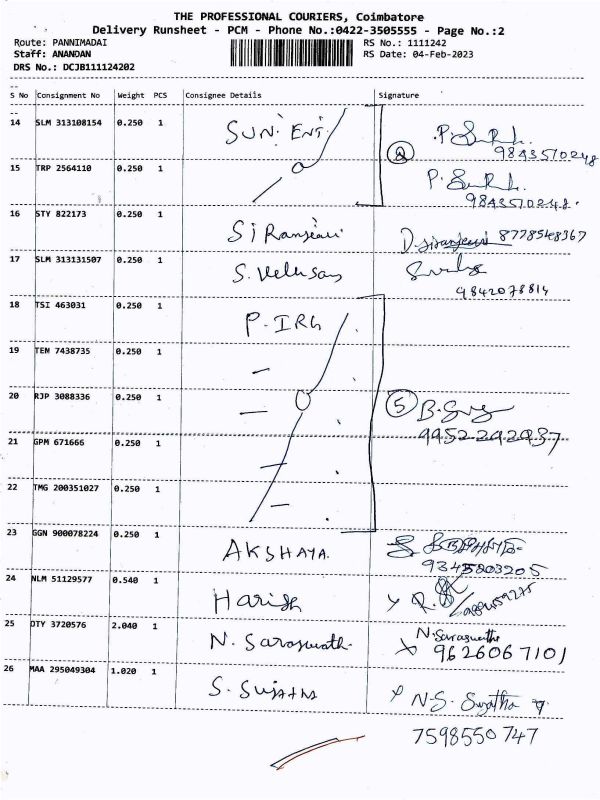 THE PROFESSIONAL COURIERS, Coimbatore
Delivery Runsheet - PCM - Phone No.:0422-3505555 - Page No.:2
Route: PANNIMADAI RS No.: 1111242
Staff: ANANDAN RS Date: 04-Feb-2023
DRS No.: DCJB111124202
S No Consignment No Weight PCS Consignee Details Signature
14 SLM 313108154 0.250 1 SUN. ENT. 2 P.
9843570248
15 TRP 2564110 0.250 1 P.
9843570248.
16 STY 822173 0.250 1 SiRanjeani D. 8778548367
17 SLM 313131507 0.250 1 S. Velusamy
9842078814
18 TSI 463031 0.250 1 P. IRG
19 TEN 7438735 0.250 1
20 RJP 3088336 0.250 1 5 B.
9952292937
21 GPM 671666 0.250 1
22 TMG 200351027 0.250 1
23 GGN 900078224 0.250 1 AKSHAYA.
9345803205
24 NLM 51129577 0.540 1 Harish x R.
25 OTY 3720576 2.040 1 N. Saraswathi N. Saraswathi
x 9626067101
26 MAA 295049304 1.020 1 S. Sujatha x N.S. Sujatha
7598550747